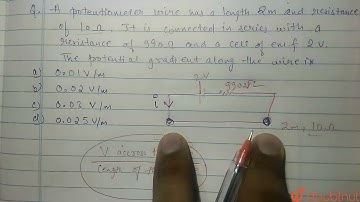 Q. A potentiometer wire has a length 2m and resistance
of 10Ω. It is connected in series with a
resistance of 990Ω and a cell of emf 2V.
The potential gradient along the wire is
a) 0.01 V/m
b) 0.02 V/m
c) 0.03 V/m
d) 0.025 V/m
2V
990Ω
i
2m, 10Ω
V across
Length of